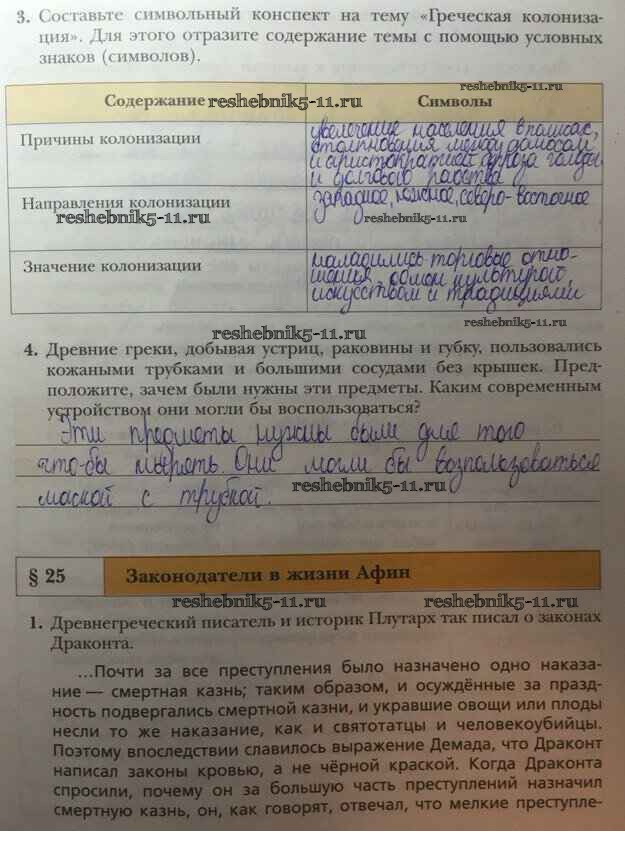 3. Составьте символьный конспект на тему «Греческая колониза-
ция». Для этого отразите содержание темы с помощью условных
знаков (символов).
Содержание reshebnik5-11.ru Символы
Причины колонизации
увеличение населения в полисах,
столкновения между демосом
и аристократией, угроза голода
и долгового рабства
Направления колонизации
западное, южное, северо-восточное
reshebnik5-11.ru reshebnik5-11.ru
Значение колонизации
наладились торговые отно-
шения, обмен культурой,
искусством и традициями
reshebnik5-11.ru
reshebnik5-11.ru
4. Древние греки, добывая устриц, раковины и губку, пользовались
кожаными трубками и большими сосудами без крышек. Пред-
положите, зачем были нужны эти предметы. Каким современным
устройством они могли бы воспользоваться?
Эти предметы нужны были для того
что-бы нырять. Они могли бы возпользоваться
маской с трубкой. reshebnik5-11.ru
§ 25 Законодатели в жизни Афин
reshebnik5-11.ru reshebnik5-11.ru
1. Древнегреческий писатель и историк Плутарх так писал о законах
Драконта.
...Почти за все преступления было назначено одно наказа-
ние — смертная казнь; таким образом, и осуждённые за празд-
ность подвергались смертной казни, и укравшие овощи или плоды
несли то же наказание, как и святотатцы и человекоубийцы.
Поэтому впоследствии славилось выражение Демада, что Драконт
написал законы кровью, а не чёрной краской. Когда Драконта
спросили, почему он за большую часть преступлений назначил
смертную казнь, он, как говорят, отвечал, что мелкие преступле-